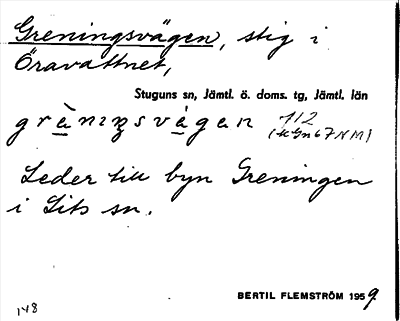 Greningsvägen, stig i
Öravattnet,
Stuguns sn, Jämtl. ö. doms. tg, Jämtl. län
grànıŋsvàgan 712
Leder till byn Greningen
i Lits sn.
BERTIL FLEMSTRÖM 1959
148